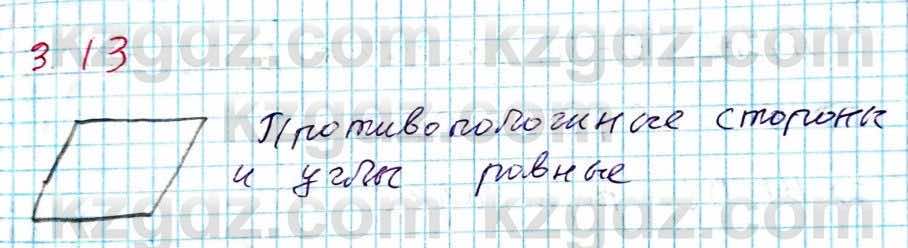 kzgdz.com kzgdz.com
3 13
kzgdz.com
Противоположные стороны
и углы ровные
kzgdz.com kzgdz.com